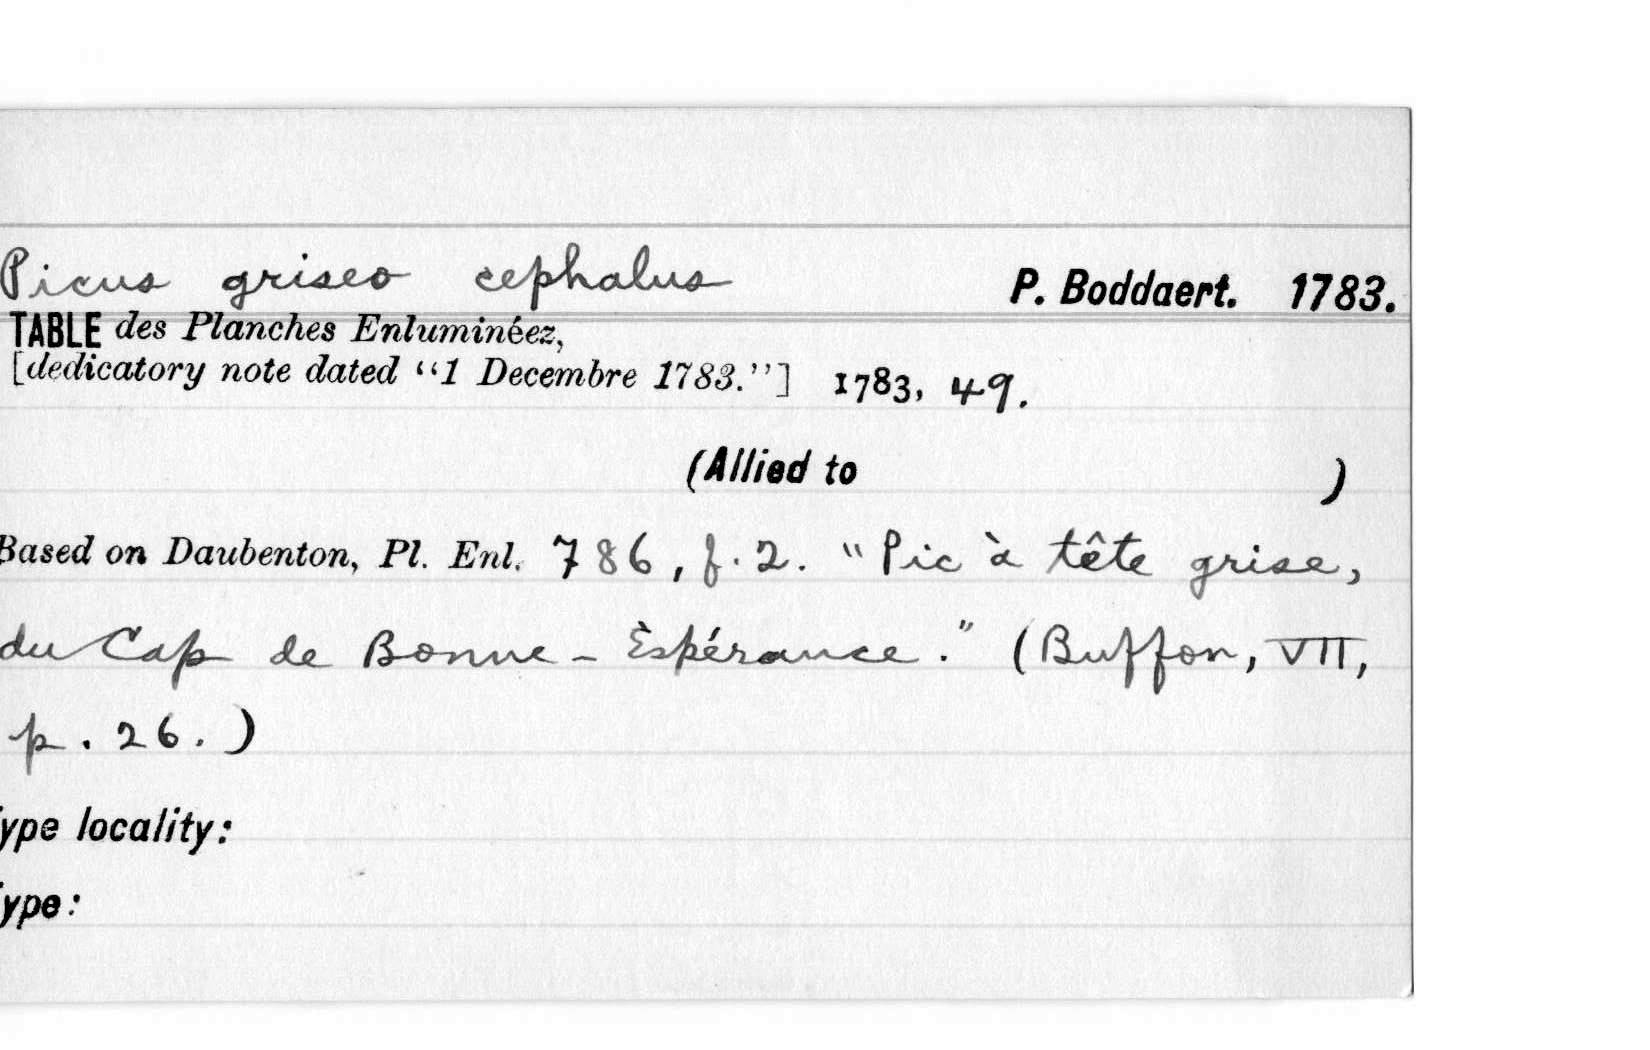 Picus griseo cephalus P. Boddaert. 1783.
TABLE des Planches Enluminéez,
[dedicatory note dated "1 Decembre 1783."] 1783, 49.
(Allied to )
Based on Daubenton, Pl. Enl. 786, f.2. "Pic à tête grise,
du Cap de Bonne-Èspérance." (Buffon, VII,
p. 26.)
ype locality:
ype: